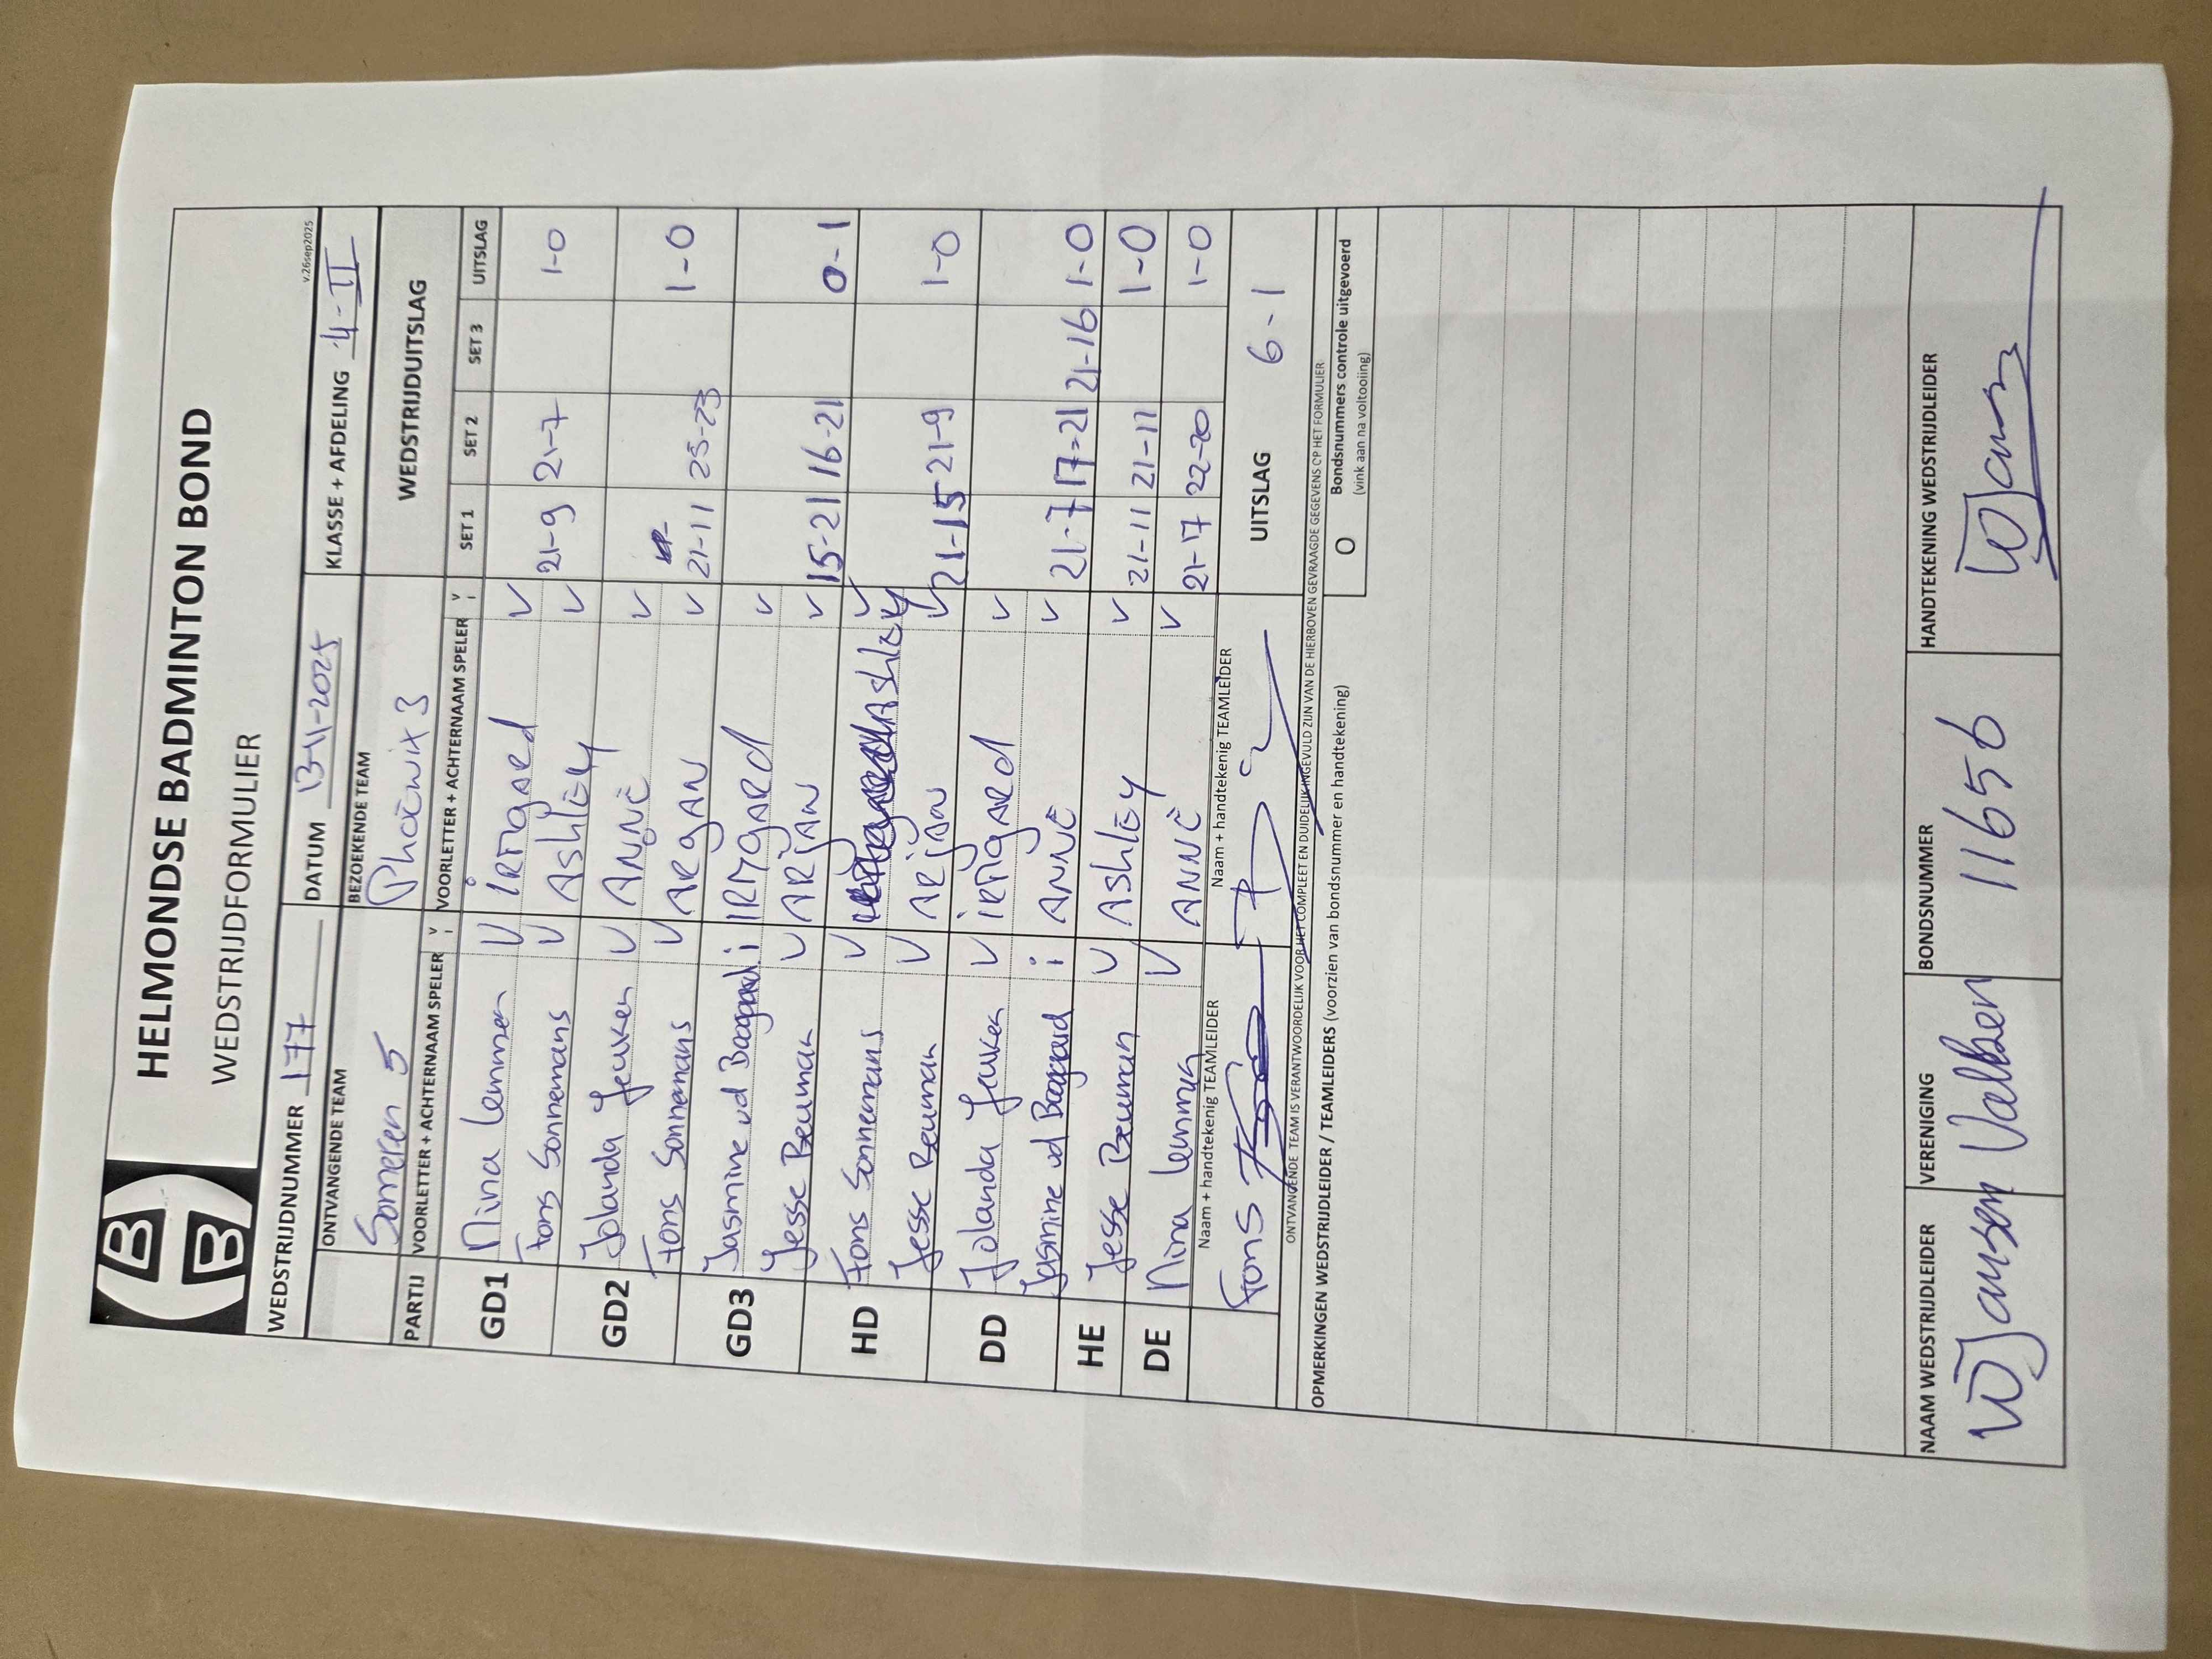 HELMONDSE BADMINTON BOND
WEDSTRIJDFORMULIER
v.26sep2025
WEDSTRIJDNUMMER 177 DATUM 13-11-2025 KLASSE + AFDELING 4-II
ONTVANGENDE TEAM BEZOEKENDE TEAM WEDSTRIJDUITSLAG
Someren 5 Phoenix 3
PARTIJ VOORLETTER + ACHTERNAAM SPELER V i VOORLETTER + ACHTERNAAM SPELER V i SET 1 SET 2 SET 3 UITSLAG
GD1 Nina Lemmen V IRMgARd V
Fons Sonnemans V AShlEy V 21-9 21-7 1-0
GD2 Jolanda Jeuken V ANNE V
Fons Sonnemans V ARgAN V 21-11 25-23 1-0
GD3 Jasmine vd Boogaard i IRMgARd V
Jesse Beuman V ARjAN V 15-21 16-21 0-1
HD Fons Sonnemans V AShlEy V
Jesse Beuman V ARjAN V 21-15 21-9 1-0
DD Jolanda Jeuken V iRMgARd V
Jasmine vd Boogaard i ANNE V 21-7 17-21 21-16 1-0
HE Jesse Beuman V AShlEy V 21-11 21-11 1-0
DE Nina Lemmen V ANNE V 21-17 22-20 1-0
Naam + handtekenig TEAMLEIDER Naam + handtekenig TEAMLEIDER UITSLAG 6-1
Fons
ONTVANGENDE TEAM IS VERANTWOORDELIJK VOOR HET COMPLEET EN DUIDELIJK INGEVULD ZIJN VAN DE HIERBOVEN GEVRAAGDE GEGEVENS OP HET FORMULIER
OPMERKINGEN WEDSTRIJDLEIDER / TEAMLEIDERS (voorzien van bondsnummer en handtekening) O Bondsnummers controle uitgevoerd
(vink aan na voltooiing)
NAAM WEDSTRIJDLEIDER VERENIGING BONDSNUMMER HANDTEKENING WEDSTRIJDLEIDER
W Jansen Valken 11656 WJans